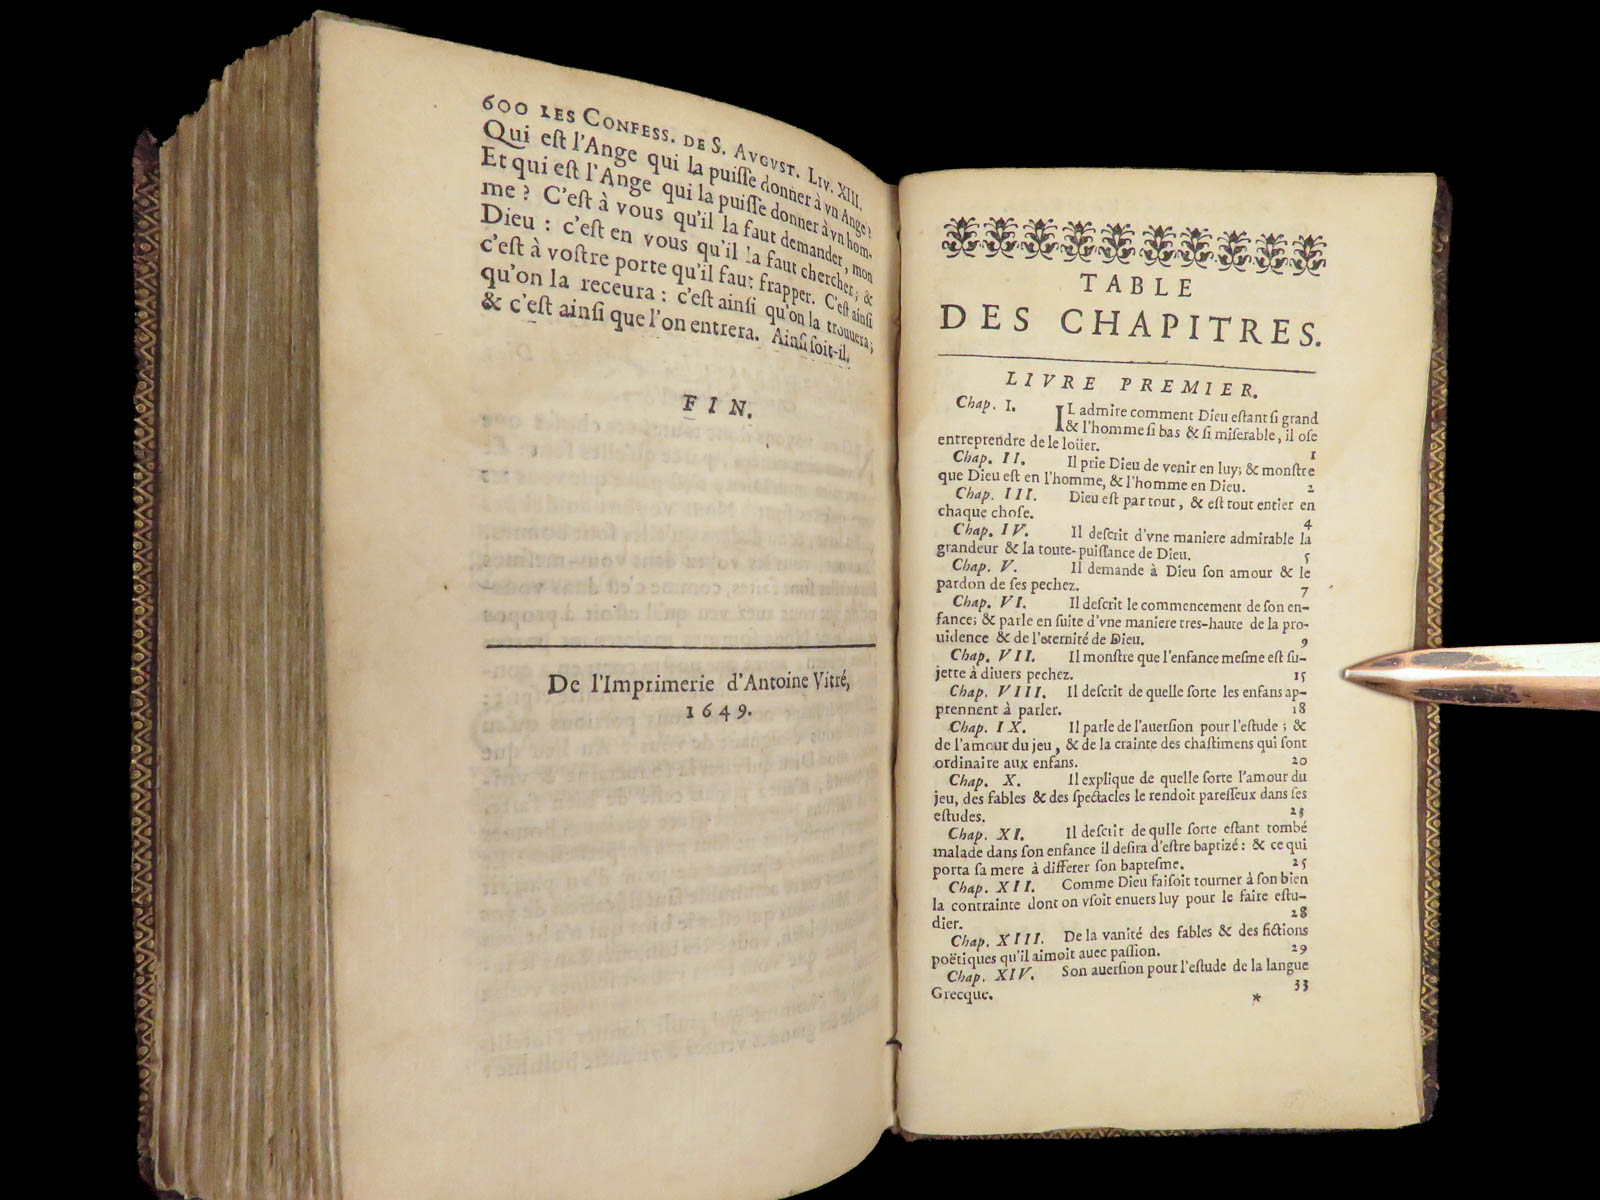 600 LES CONFESS. DE S. AVGVST. LIV. XIII.
Qui eſt l'Ange qui la puiſſe donner à vn Ange?
Et qui eſt l'Ange qui la puiſſe donner à vn hom-
me? C'eſt à vous qu'il la faut demander, mon
Dieu: c'eſt en vous qu'il la faut chercher; &
c'eſt à voſtre porte qu'il faut frapper. C'eſt ainſi
qu'on la receura: c'eſt ainſi qu'on la trouuera;
& c'eſt ainſi que l'on entrera. Ainſi ſoit-il.
FIN.
De l'Imprimerie d'Antoine Vitré,
1649.
TABLE
DES CHAPITRES.
LIVRE PREMIER.
Chap. I. IL admire comment Dieu eſtant ſi grand
& l'homme ſi bas & ſi miſerable, il oſe
entreprendre de le loüer. 1
Chap. II. Il prie Dieu de venir en luy; & monſtre
que Dieu eſt en l'homme, & l'homme en Dieu. 2
Chap. III. Dieu eſt par tout, & eſt tout entier en
chaque choſe. 4
Chap. IV. Il deſcrit d'vne maniere admirable la
grandeur & la toute-puiſſance de Dieu. 5
Chap. V. Il demande à Dieu ſon amour & le
pardon de ſes pechez. 7
Chap. VI. Il deſcrit le commencement de ſon en-
fance; & parle en ſuite d'vne maniere tres-haute de la pro-
uidence & de l'eternité de Dieu. 9
Chap. VII. Il monſtre que l'enfance meſme eſt ſu-
jette à diuers pechez. 15
Chap. VIII. Il deſcrit de quelle ſorte les enfans ap-
prennent à parler. 18
Chap. IX. Il parle de l'auerſion pour l'eſtude; &
de l'amour du jeu, & de la crainte des chaſtimens qui ſont
ordinaire aux enfans. 20
Chap. X. Il explique de quelle ſorte l'amour du
jeu, des fables & des ſpectacles le rendoit pareſſeux dans ſes
eſtudes. 23
Chap. XI. Il deſcrit de qulle ſorte eſtant tombé
malade dans ſon enfance il deſira d'eſtre baptizé: & ce qui
porta ſa mere à differer ſon bapteſme. 25
Chap. XII. Comme Dieu faiſoit tourner à ſon bien
la contrainte dont on vſoit enuers luy pour le faire eſtu-
dier. 28
Chap. XIII. De la vanité des fables & des fictions
poëtiques qu'il aimoit auec paſſion. 29
Chap. XIV. Son auerſion pour l'eſtude de la langue
Grecque. 33
*